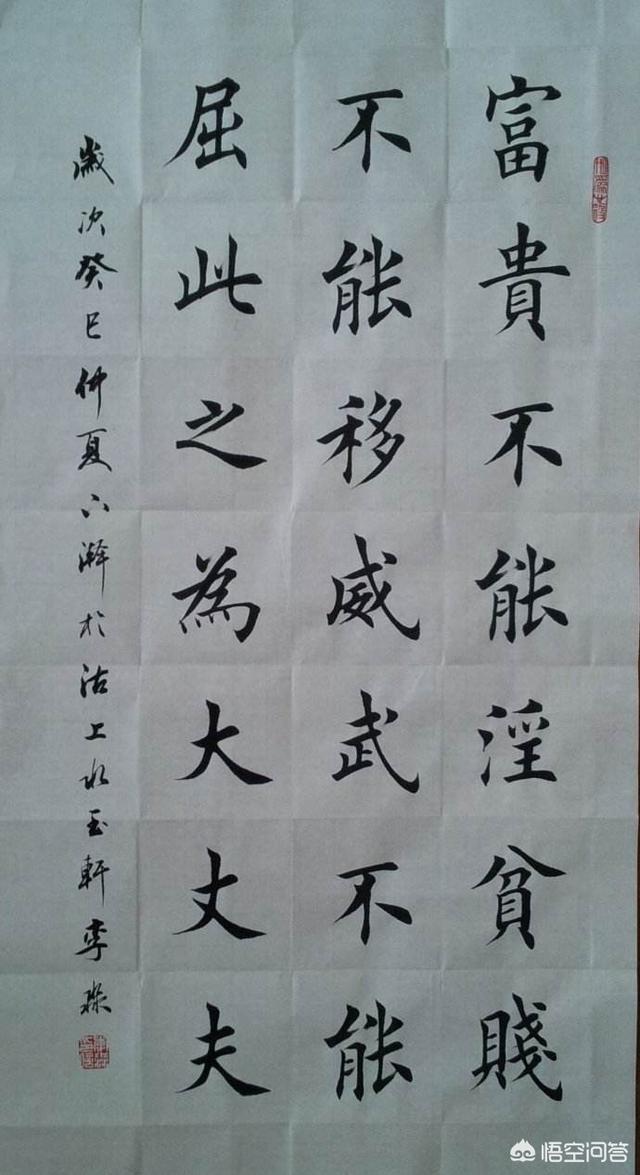 富貴不能淫貧賤
不能移威武不能
屈此之為大丈夫
歲次癸巳仲夏六澣於沽上水玉軒李
悟空问答